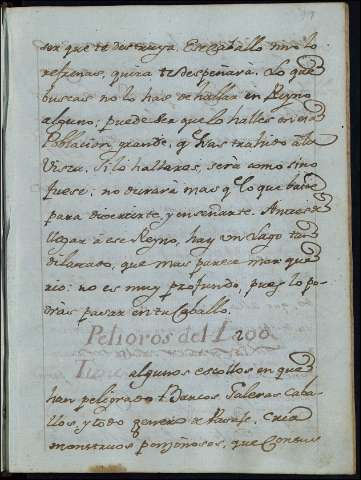 ser que te destruya. Ese caballo sino lo
refrenas, quiza te despeñará. Lo que
buscas no lo has de hallar en Reyno
alguno; puede ser que lo halles en esa
Poblacion grande, q̃ has trahido a la
Vista. Si lo hallares, será como sino
fuese; no durará mas q̃ lo que baste
para divertirte, y enseñarte. Antes de
llegar à ese Reyno, hay un Lago tan
dilatado, que mas parece mar que
rio: no es muy profundo, pues lo po-
dràs pasar en tu Caballo.
Peligros del Lago.
Tiene algunos escollos en que
han peligrado Barcos, Galeras, caba-
llos, y todo genero de Pasaje. Cria
monstruos ponzoñosos, que con sus